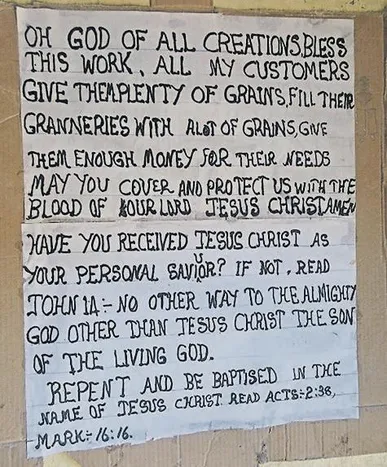 OH GOD OF ALL CREATIONS,BLESS
THIS WORK, ALL MY CUSTOMERS
GIVE THEMPLENTY OF GRAINS,FILL THEIR
GRANNERIES WITH ALOT OF GRAINS,GIVE
THEM ENOUGH MONEY FOR THEIR NEEDS
MAY YOU COVER AND PROTECT US WITH THE
BLOOD OF OUR LORD JESUS CHRISTAMEN
HAVE YOU RECEIVED JESUS CHRIST AS
YOUR PERSONAL SAVIOUR? IF NOT, READ
JOHN 14:- NO OTHER WAY TO THE ALMIGHTY
GOD OTHER THAN JESUS CHRIST THE SON
OF THE LIVING GOD.
REPENT AND BE BAPTISED IN THE
NAME OF JESUS CHRIST READ ACTS:-2:38,
MARK:-16:16.